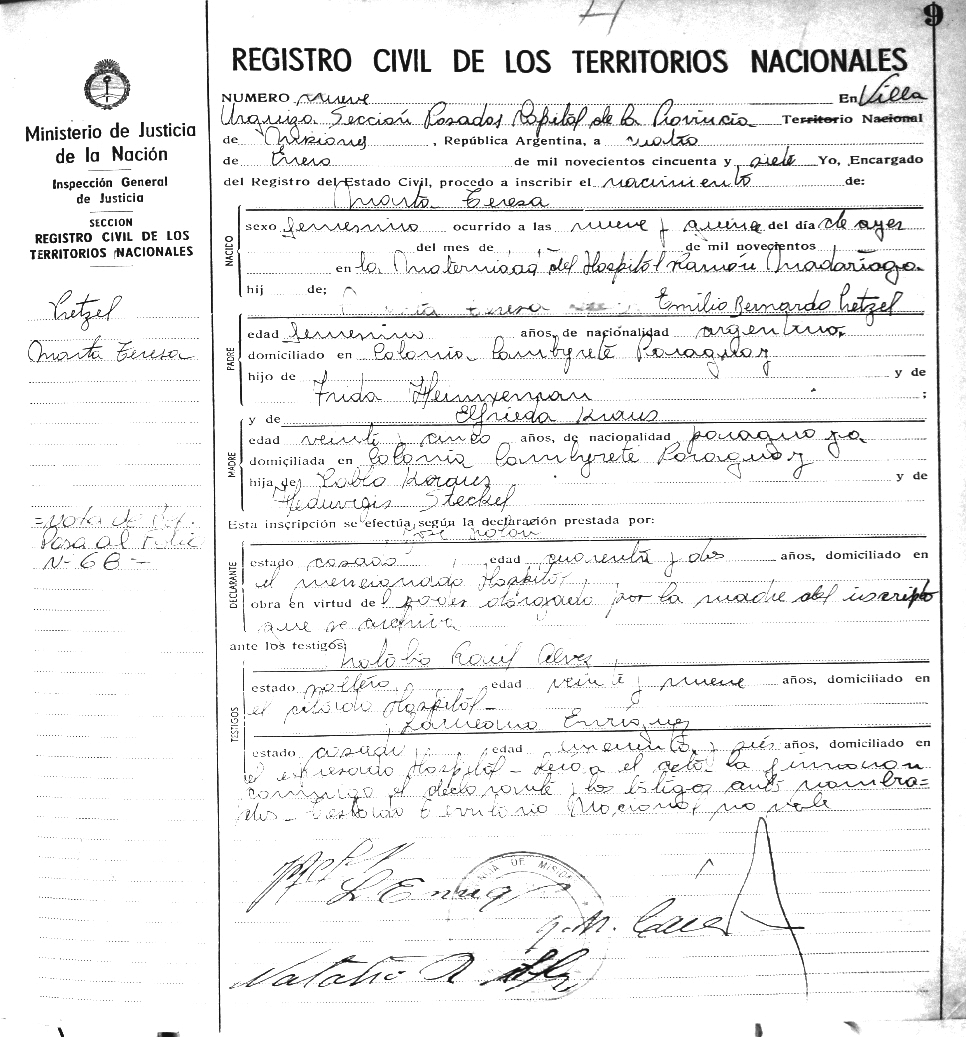 9
REGISTRO CIVIL DE LOS TERRITORIOS NACIONALES
NUMERO nueve En Villa
Urquiza Sección Posadas Capital de la Provincia Territorio Nacional
de Misiones, República Argentina, a cuatro
de Enero de mil novecientos cincuenta y siete Yo, Encargado
del Registro del Estado Civil, procedo a inscribir el nacimiento de:
Marta Teresa
NACIDO
sexo femenino ocurrido a las nueve y quince del día de ayer
del mes de de mil novecientos
en la Maternidad del Hospital Ramón Madariaga
hij de; Teresa Emilio Bernardo Hetzel
PADRE
edad femenino años, de nacionalidad argentino
domiciliado en Colonia Cambyreté Paraguay
hijo de y de
Frida ;
y de Elfrieda Kraus
MADRE
edad veinte y cinco años, de nacionalidad paraguaya
domiciliada en Colonia Cambyreté Paraguay
hija de Pablo Kraus y de
Heduvigis Steckel
Esta inscripción se efectúa según la declaración prestada por:
DECLARANTE
estado casado, edad cuarenta y dos años, domiciliado en
el mencionado Hospital
obra en virtud del poder otorgado por la madre del inscripto
que se archiva
ante los testigos;
TESTIGOS
Natalio Raul Alvez
estado soltero, edad veinte y nueve años, domiciliado en
el citado Hospital -
Enriquez
estado casado, edad y seis años, domiciliado en
el expresado Hospital - Leida el acta la firmaron
conmigo el declarante y los testigos ante nombra=
dos - Testado Territorio Nacional no vale
L Enriq
Natalio R
Ministerio de Justicia
de la Nación
Inspección General
de Justicia
SECCION
REGISTRO CIVIL DE LOS
TERRITORIOS NACIONALES
Hetzel
Marta Teresa
=Nota de Ref.
Pasa al folio
N- 68 -